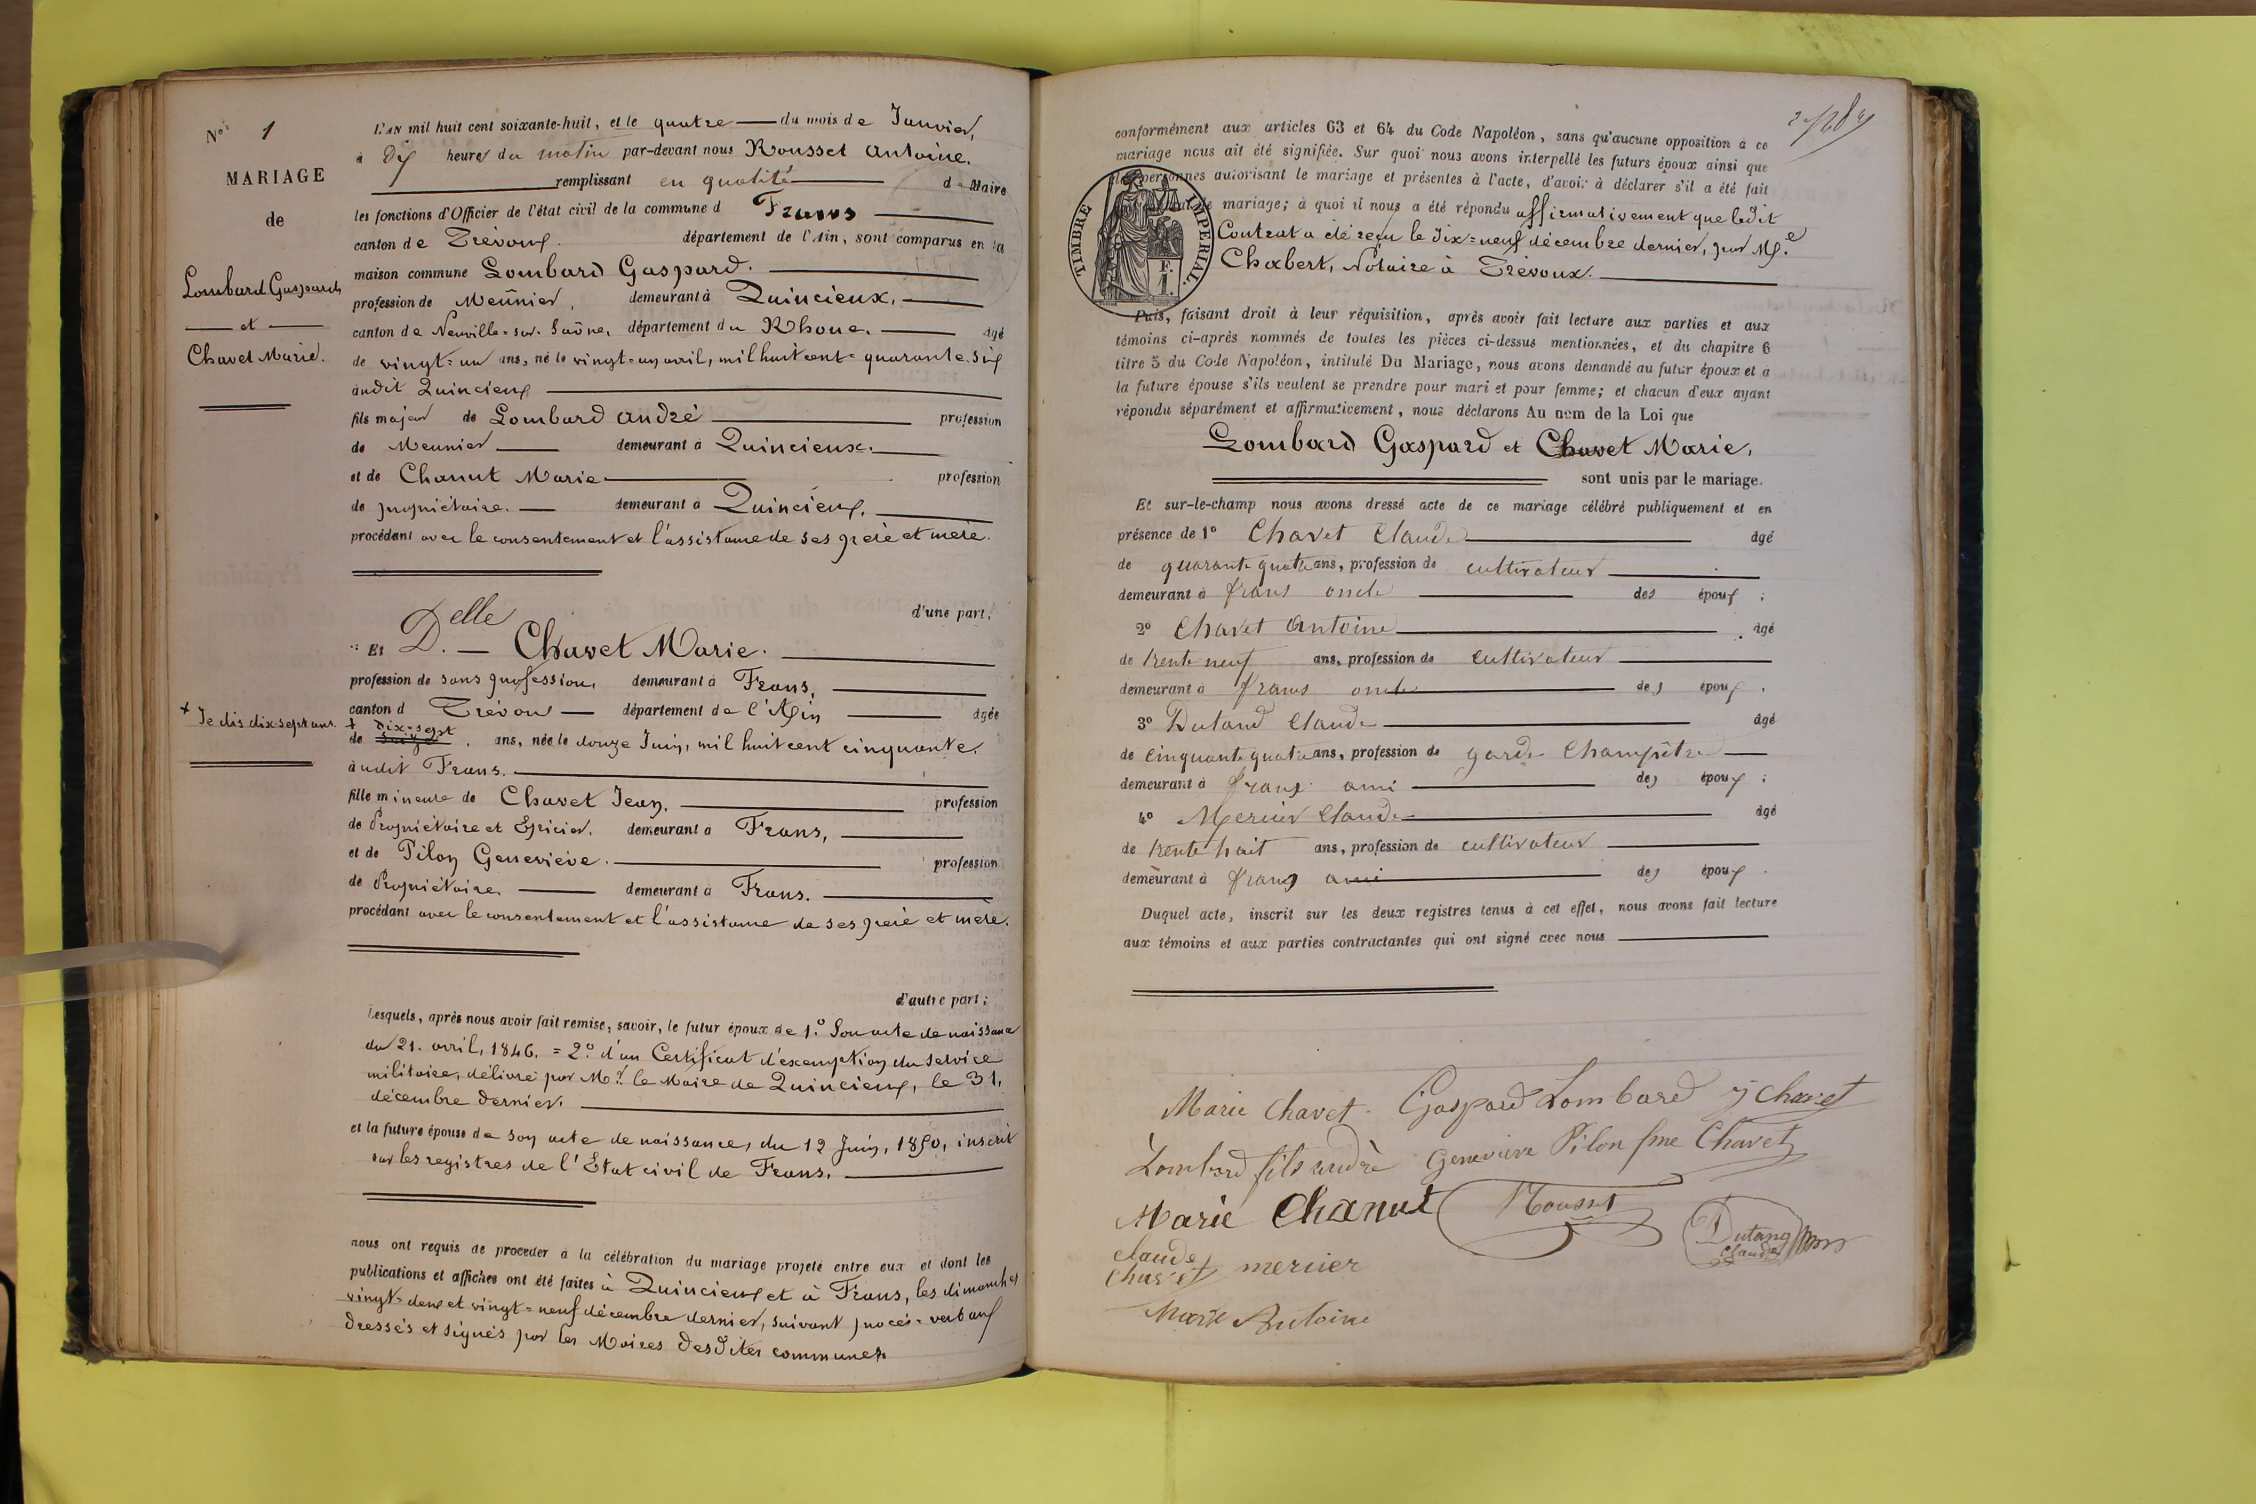 Nos 1
MARIAGE
de
Lombard Gaspard
et
Chavet Marie.
+ Je dis dix-sept ans.
L'AN mil huit cent soixante-huit, et le quatre du mois de Janvier,
à Dix heures du matin par-devant nous Rousset Antoine.
remplissant en qualité de Maire
les fonctions d'Officier de l'état civil de la commune d Frans
canton de Trévoux. département de l'Ain, sont comparus en la
maison commune Lombard Gaspard.
profession de Meûnier, demeurant à Quincieux,
canton de Neuville-sur-Saône, département du Rhone. âgé
de vingt-un ans, né le vingt-un avril, mil huit cent-quarante-six
audit Quincieux
fils majeur de Lombard André profession
de Meunier demeurant à Quincieux.
et de Chanut Marie profession
de propriétaire. demeurant à Quincieux.
procédant avec le consentement et l'assistance de ses père et mère.
d'une part.
Et Delle Chavet Marie.
profession de sans profession, demeurant à Frans,
canton d Trévoux département de l'Ain âgée
+ dix-sept
de seize ans, née le douze Juin, mil huit cent cinquante.
audit Frans.
fille mineure de Chavet Jean, profession
de Propriétaire et Epicier. demeurant à Frans,
et de Pilon Geneviève. profession
de Propriétaire. demeurant à Frans.
procédant avec le consentement et l'assistance de ses père et mère.
d'autre part;
Lesquels, après nous avoir fait remise, savoir, le futur époux de 1.° Son acte de naissance
du 21. avril, 1846. = 2.° d'un Certificat d'exemption du service
militaire, délivré par Mr. le Maire de Quincieux, le 31,
décembre dernier.
et la future épouse de son acte de naissance, du 12 Juin, 1850, inscrit
sur les registres de l'Etat civil de Frans.
nous ont requis de procéder à la célébration du mariage projeté entre eux et dont les
publications et affiches ont été faites à Quincieux et à Frans, les dimanches
vingt-deux et vingt-neuf décembre dernier, suivant procès-verbaux
dressés et signés par les Maires desdites communes
conformément aux articles 63 et 64 du Code Napoléon, sans qu'aucune opposition à ce
mariage nous ait été signifiée. Sur quoi nous avons interpellé les futurs époux ainsi que
les personnes autorisant le mariage et présentes à l'acte, d'avoir à déclarer s'il a été fait
de mariage; à quoi il nous a été répondu affirmativement que ledit
Contrat a été reçu le Dix-neuf décembre dernier, par Me.
Chabert, Notaire à Trévoux.
TIMBRE IMPERIAL.
F.
1.
Puis, faisant droit à leur réquisition, après avoir fait lecture aux parties et aux
témoins ci-après nommés de toutes les pièces ci-dessus mentionnées, et du chapitre 6
titre 5 du Code Napoléon, intitulé Du Mariage, nous avons demandé au futur époux et à
la future épouse s'ils veulent se prendre pour mari et pour femme; et chacun d'eux ayant
répondu séparément et affirmativement, nous déclarons Au nom de la Loi que
Lombard Gaspard et Chavet Marie,
sont unis par le mariage.
Et sur-le-champ nous avons dressé acte de ce mariage célébré publiquement et en
présence de 1° Chavet Claude âgé
de quarante quatre ans, profession de cultivateur
demeurant à frans oncle des époux;
2° Chavet Antoine âgé
de trente neuf ans, profession de cultivateur
demeurant à frans oncle des époux.
3° Dutand Claude âgé
de cinquante quatre ans, profession de garde Champêtre
demeurant à frans ami des époux;
4° Mercier Claude âgé
de trente huit ans, profession de cultivateur
demeurant à frans ami des époux.
Duquel acte, inscrit sur les deux registres tenus à cet effet, nous avons fait lecture
aux témoins et aux parties contractantes qui ont signé avec nous
Marie Chavet Gaspard Lombard j Chavet
Lombard fils andré Genevieve Pilon fme Chavet
Marie Chanut Rousset
Claude
Chavet mercier